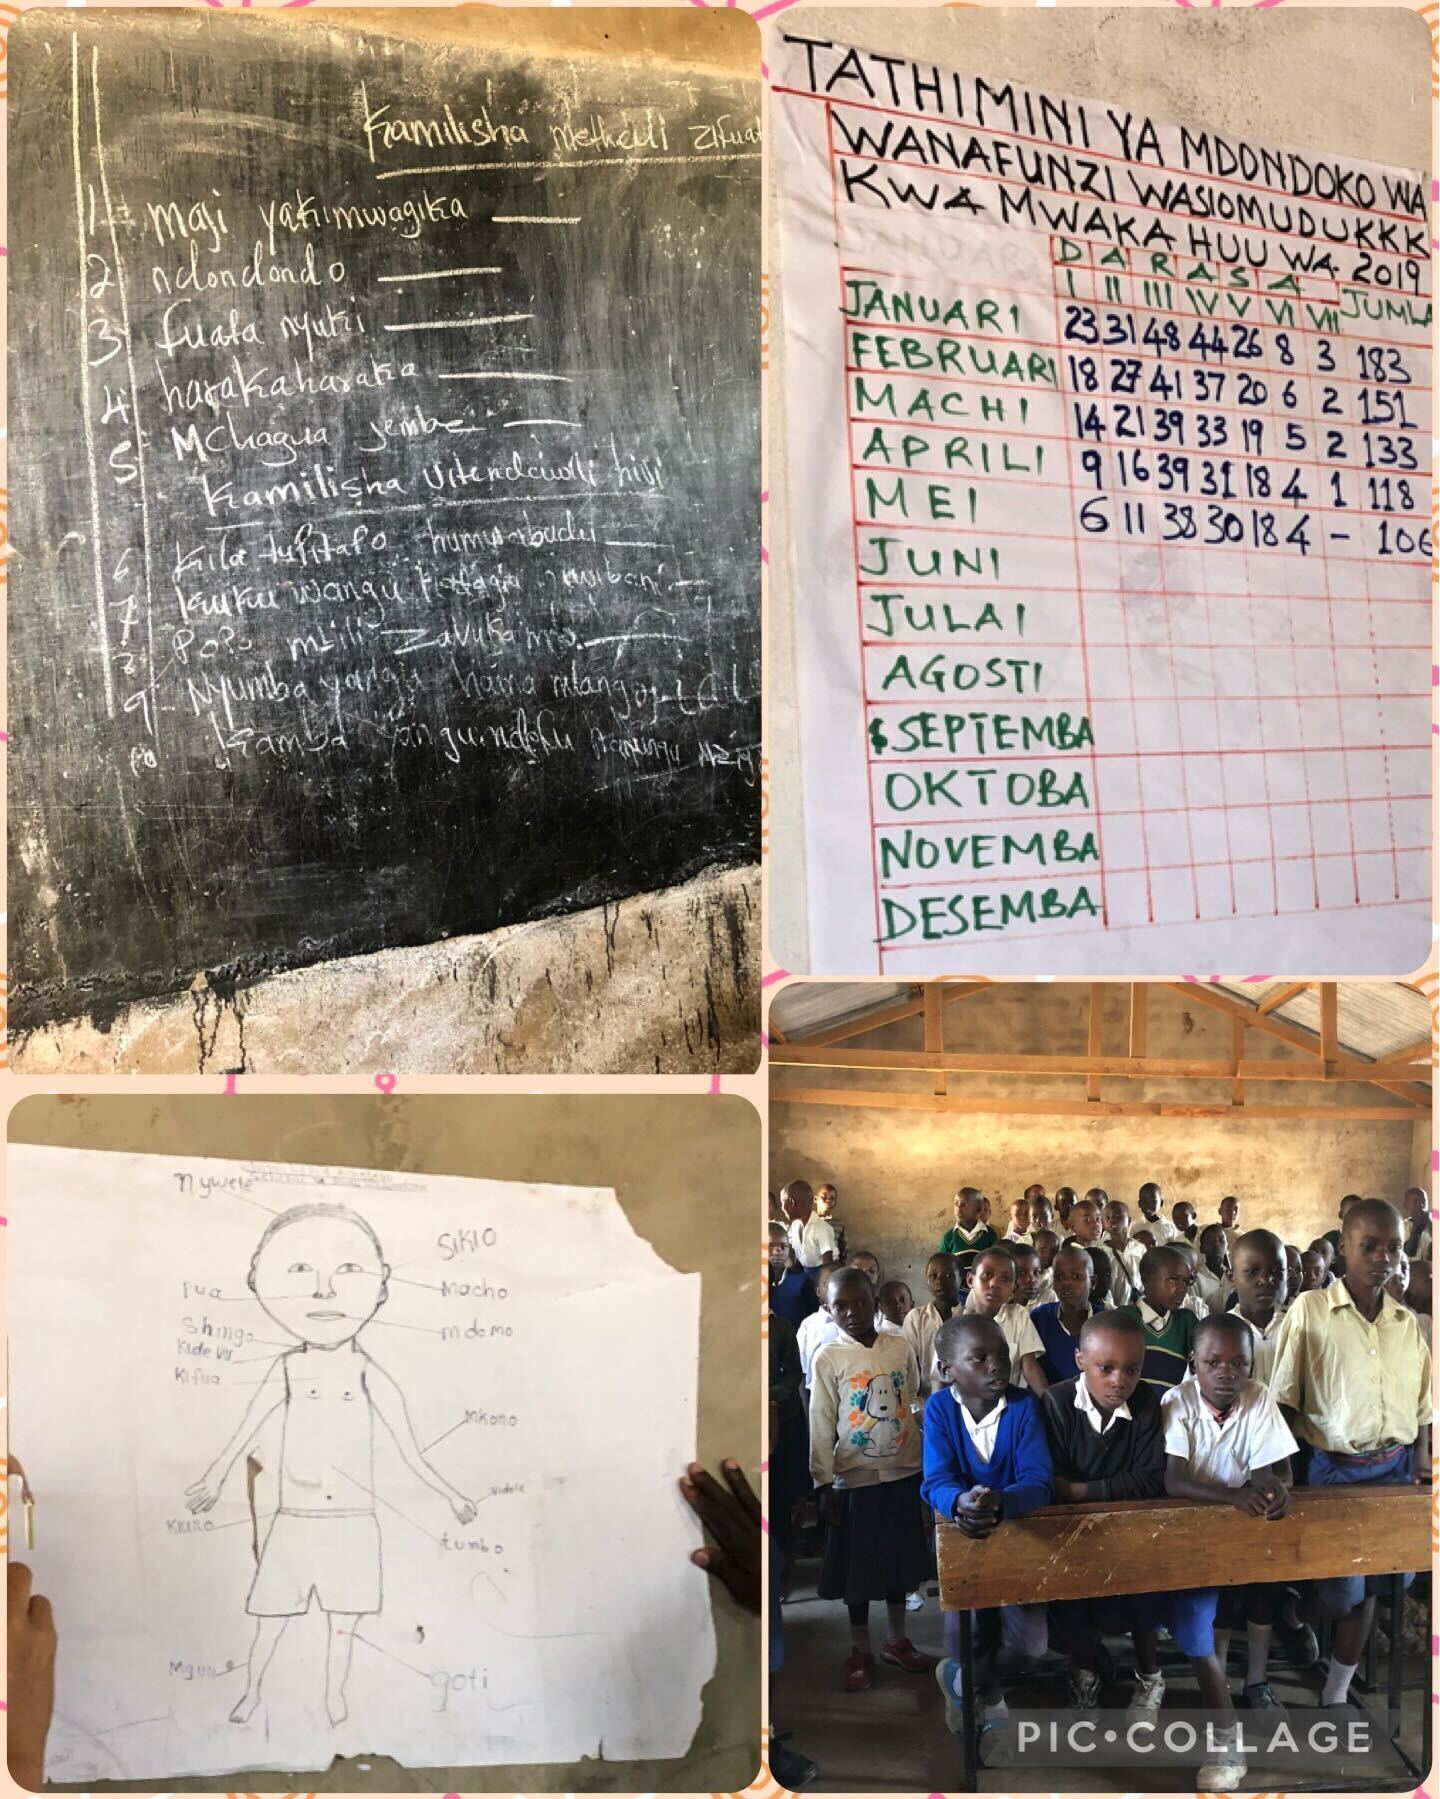 Kamilisha methali
1 maji yakimwagika
2 ndondondo
3 fuata nyuki
4 harakaharaka
5 Mchagua jembe
Kamilisha vitendawili hivi
6 Kila nipitapo
7 Kuku wangu
8 Popo mbili zavuka mto
9 Nyumba yangu haina mlango
10 Kamba yangu ndefu
TATHIMINI YA MDONDOKO WA
WANAFUNZI WASIOMUDU KKK
KWA MWAKA HUU WA 2019
DARASA
I II III IV V VI VII JUMLA
JANUARI 23 31 48 44 26 8 3 183
FEBRUARI 18 27 41 37 20 6 2 151
MACHI 14 21 39 33 19 5 2 133
APRILI 9 16 39 31 18 4 1 118
MEI 6 11 38 30 18 4 - 106
JUNI
JULAI
AGOSTI
SEPTEMBA
OKTOBA
NOVEMBA
DESEMBA
nywele
SIKIO
pua
macho
Shingo
mdomo
Kidevu
Kifua
mkono
Kiuno
tumbo
Mguu
goti
PIC•COLLAGE